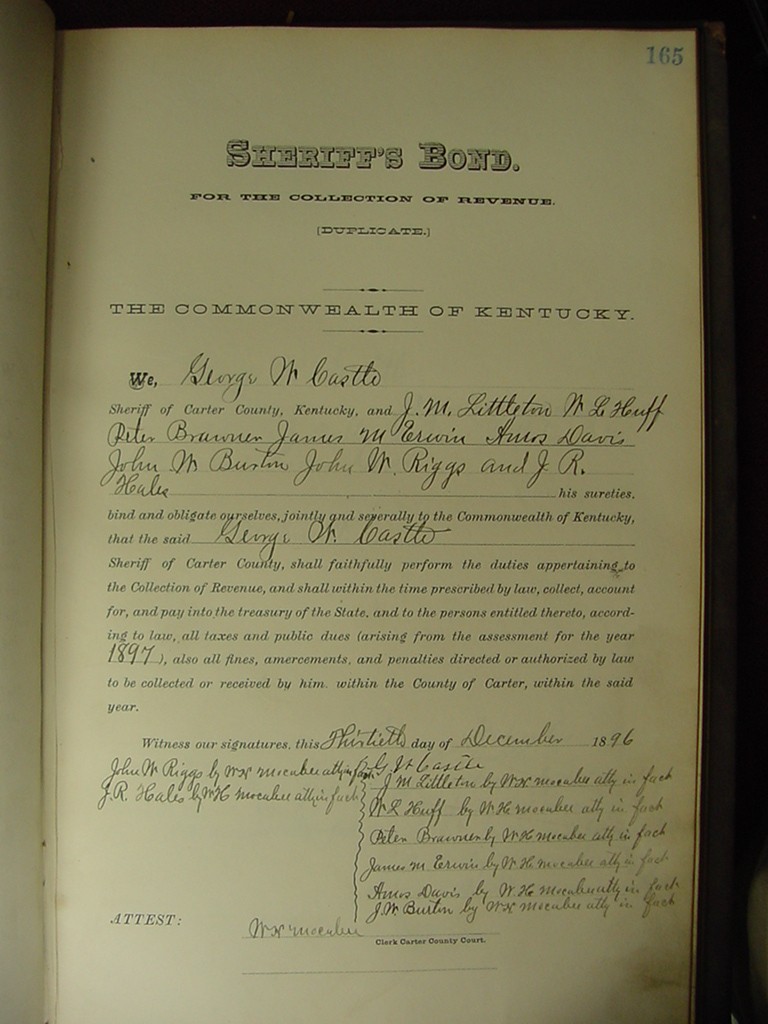 165
SHERIFF'S BOND.
FOR THE COLLECTION OF REVENUE.
[DUPLICATE.]
THE COMMONWEALTH OF KENTUCKY.
We, George W Castle
Sheriff of Carter County, Kentucky, and J. M. Littleton W L Huff
Peter Brawner James M Erwin Amos Davis
John W Burton John W. Riggs and J R.
Hales his sureties,
bind and obligate ourselves, jointly and severally to the Commonwealth of Kentucky,
that the said George W. Castle
Sheriff of Carter County, shall faithfully perform the duties appertaining to
the Collection of Revenue, and shall within the time prescribed by law, collect, account
for, and pay into the treasury of the State, and to the persons entitled thereto, accord-
ing to law, all taxes and public dues (arising from the assessment for the year
1897), also all fines, amercements, and penalties directed or authorized by law
to be collected or received by him, within the County of Carter, within the said
year.
Witness our signatures, this Thirtieth day of December 1896
G W Castle
John W Riggs by W H mocabee atty in fact
J M Littleton by W H mocabee atty in fact
J. R. Hales by W H mocabee atty in fact
W L Huff by W H mocabee atty in fact
Peter Brawner by W H mocabee atty in fact
James M Erwin by W H mocabee atty in fact
Amos Davis by W. H. mocabee atty in fact
J. W Burton by W H mocabee atty in fact
ATTEST: W H mocabee
Clerk Carter County Court.